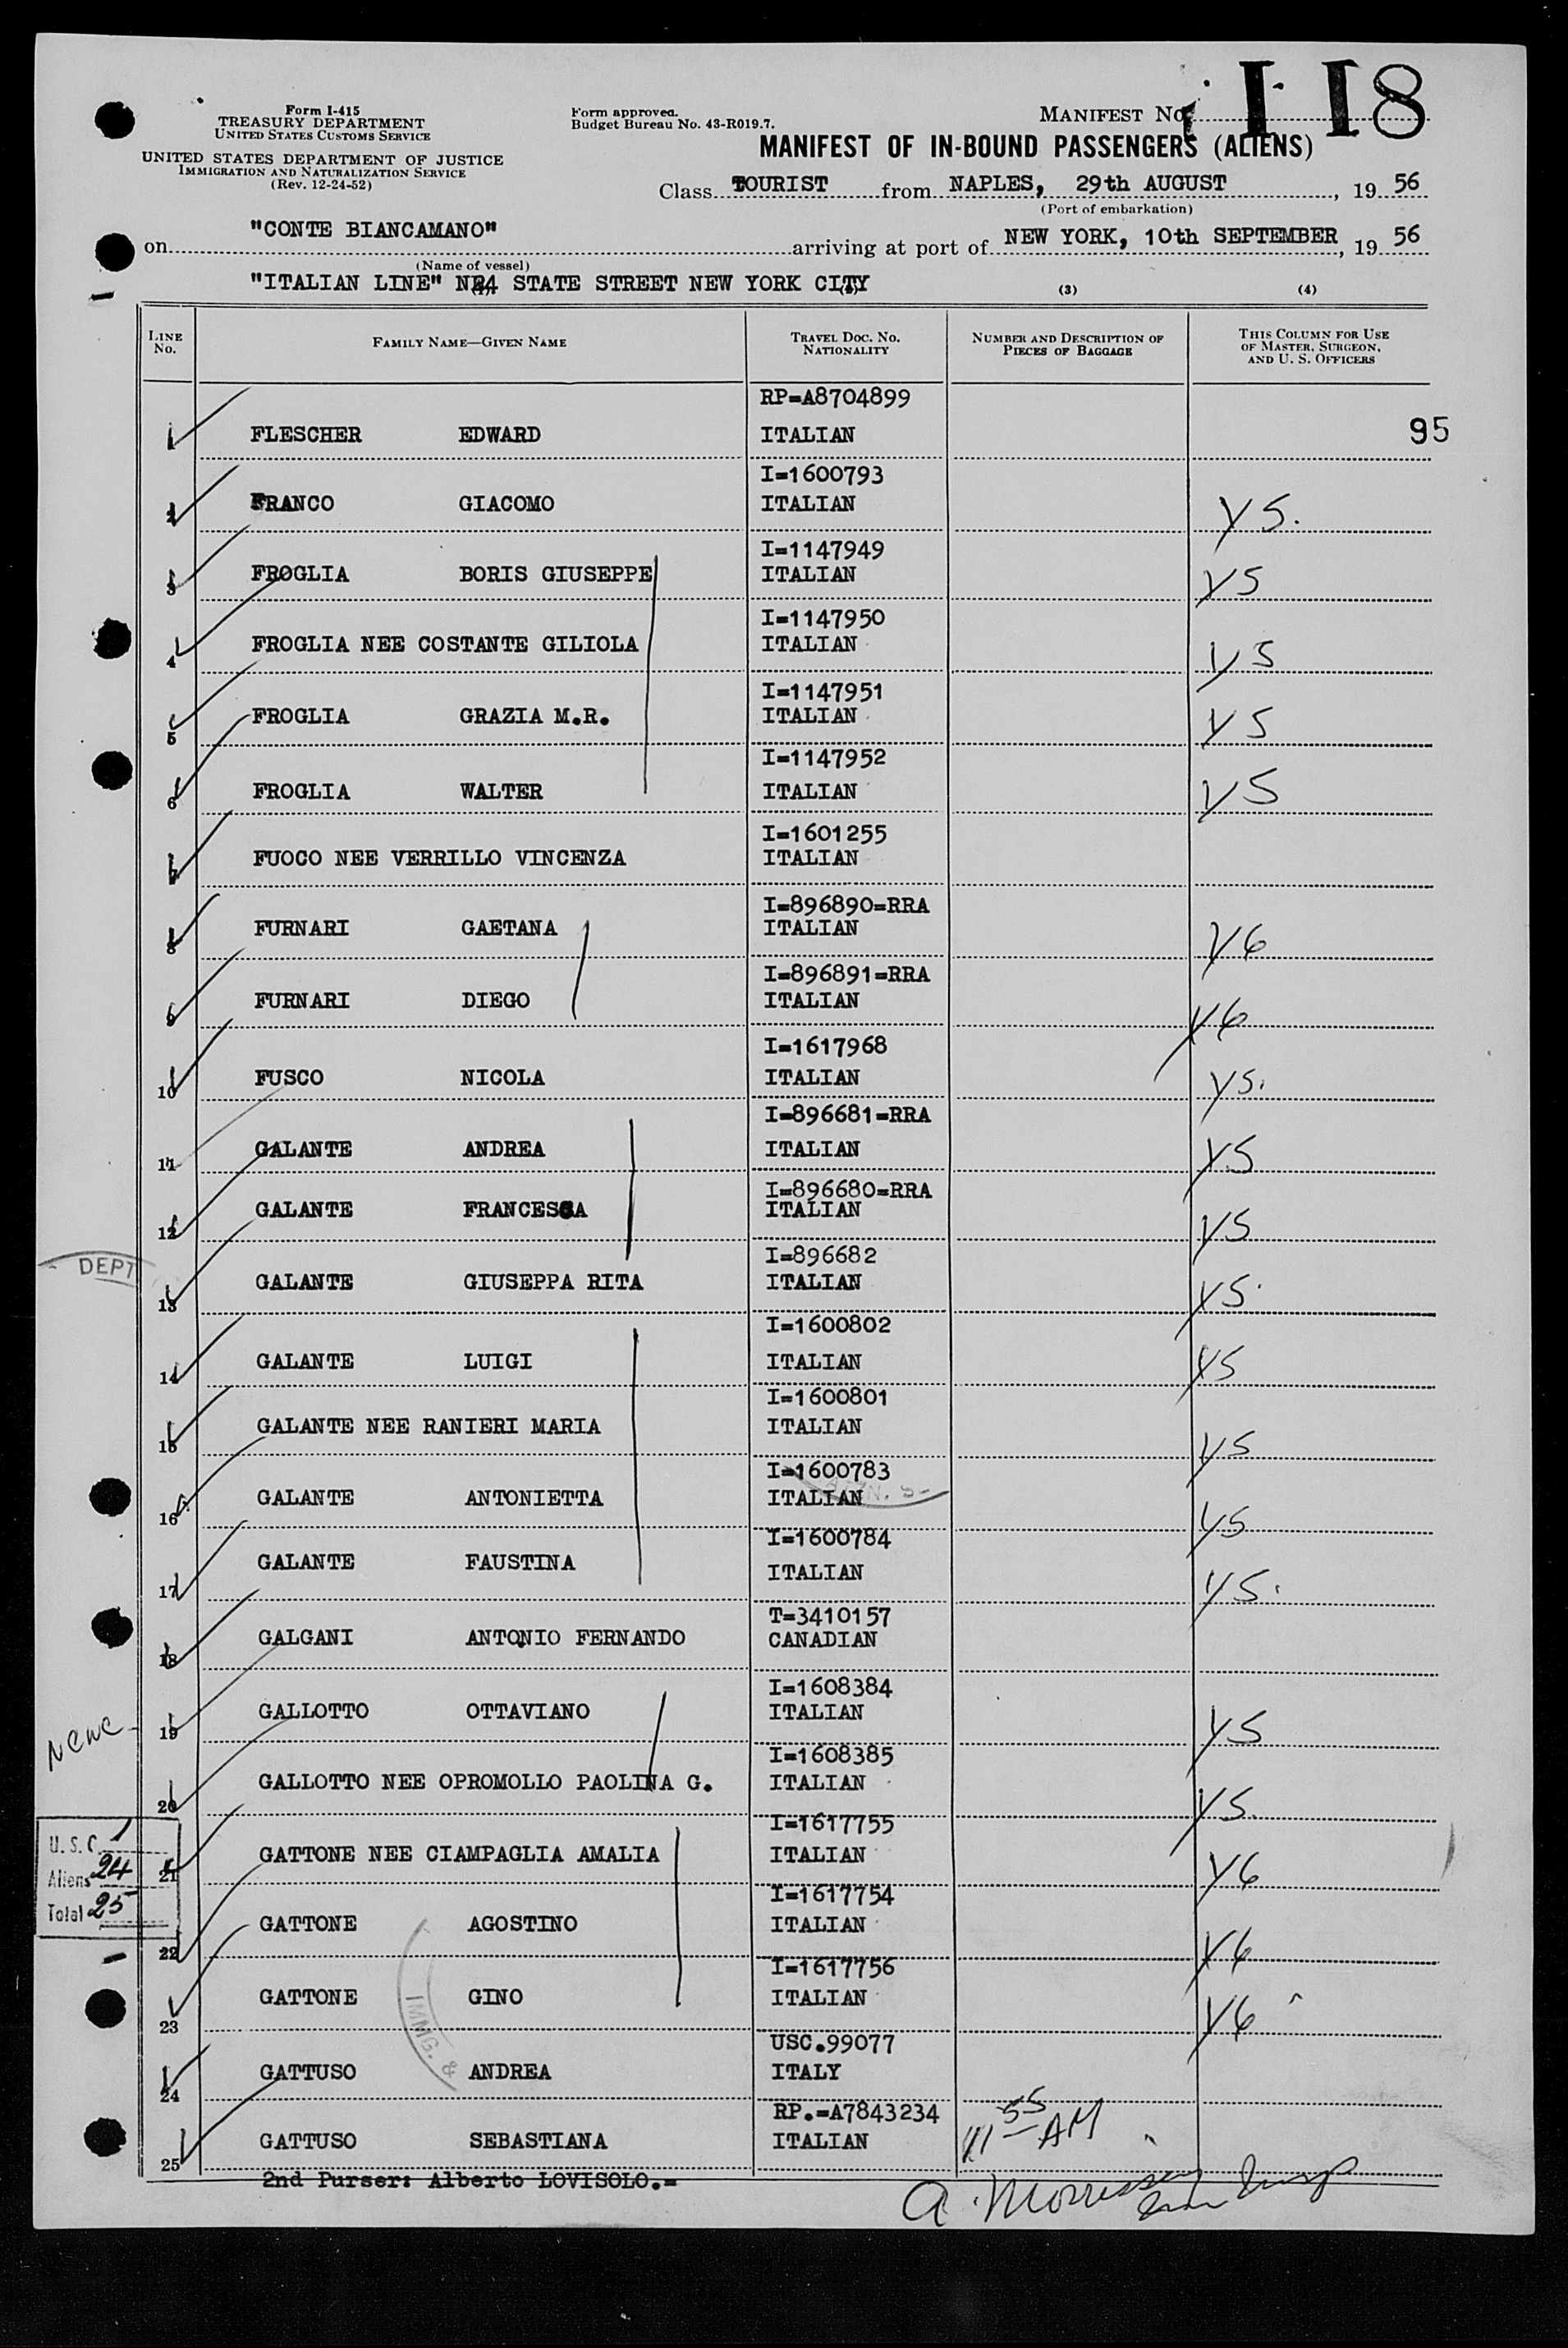 Form I-415
TREASURY DEPARTMENT
UNITED STATES CUSTOMS SERVICE
UNITED STATES DEPARTMENT OF JUSTICE
IMMIGRATION AND NATURALIZATION SERVICE
(Rev. 12-24-52)
Form approved.
Budget Bureau No. 43-R019.7.
MANIFEST No. 118
MANIFEST OF IN-BOUND PASSENGERS (ALIENS)
Class TOURIST from NAPLES, 29th AUGUST, 19 56
(Port of embarkation)
on "CONTE BIANCAMANO" arriving at port of NEW YORK, 10th SEPTEMBER, 19 56
(Name of vessel)
"ITALIAN LINE" STATE STREET NEW YORK CITY
(3) (4)
LINE No. FAMILY NAME—GIVEN NAME TRAVEL DOC. NO. NATIONALITY NUMBER AND DESCRIPTION OF PIECES OF BAGGAGE THIS COLUMN FOR USE OF MASTER, SURGEON, AND U. S. OFFICERS
RP=A8704899
1 FLESCHER EDWARD ITALIAN 95
I=1600793
2 FRANCO GIACOMO ITALIAN Y5.
I=1147949
3 FROGLIA BORIS GIUSEPPE ITALIAN Y5
I=1147950
4 FROGLIA NEE COSTANTE GILIOLA ITALIAN Y5
I=1147951
5 FROGLIA GRAZIA M.R. ITALIAN Y5
I=1147952
6 FROGLIA WALTER ITALIAN Y5
I=1601255
7 FUOCO NEE VERRILLO VINCENZA ITALIAN
I=896890=RRA
8 FURNARI GAETANA ITALIAN Y6
I=896891=RRA
9 FURNARI DIEGO ITALIAN Y6
I=1617968
10 FUSCO NICOLA ITALIAN Y5.
I=896681=RRA
11 GALANTE ANDREA ITALIAN Y5
I=896680=RRA
12 GALANTE FRANCESCA ITALIAN Y5
DEPT
I=896682
13 GALANTE GIUSEPPA RITA ITALIAN Y5.
I=1600802
14 GALANTE LUIGI ITALIAN Y5
I=1600801
15 GALANTE NEE RANIERI MARIA ITALIAN Y5
I=1600783
16 GALANTE ANTONIETTA ITALIAN Y5
I=1600784
17 GALANTE FAUSTINA ITALIAN Y5.
T=3410157
18 GALGANI ANTONIO FERNANDO CANADIAN
I=1608384
19 GALLOTTO OTTAVIANO ITALIAN Y5
I=1608385
20 GALLOTTO NEE OPROMOLLO PAOLINA G. ITALIAN Y5.
I=1617755
21 GATTONE NEE CIAMPAGLIA AMALIA ITALIAN Y6
I=1617754
22 GATTONE AGOSTINO ITALIAN Y6
I=1617756
23 GATTONE GINO ITALIAN Y6
USC.99077
24 GATTUSO ANDREA ITALY
RP.=A7843234
25 GATTUSO SEBASTIANA ITALIAN
U. S. C. 1
Aliens 24
Total 25
IMMG. &
11 55 AM
2nd Purser: Alberto LOVISOLO.=
A. Morrissey